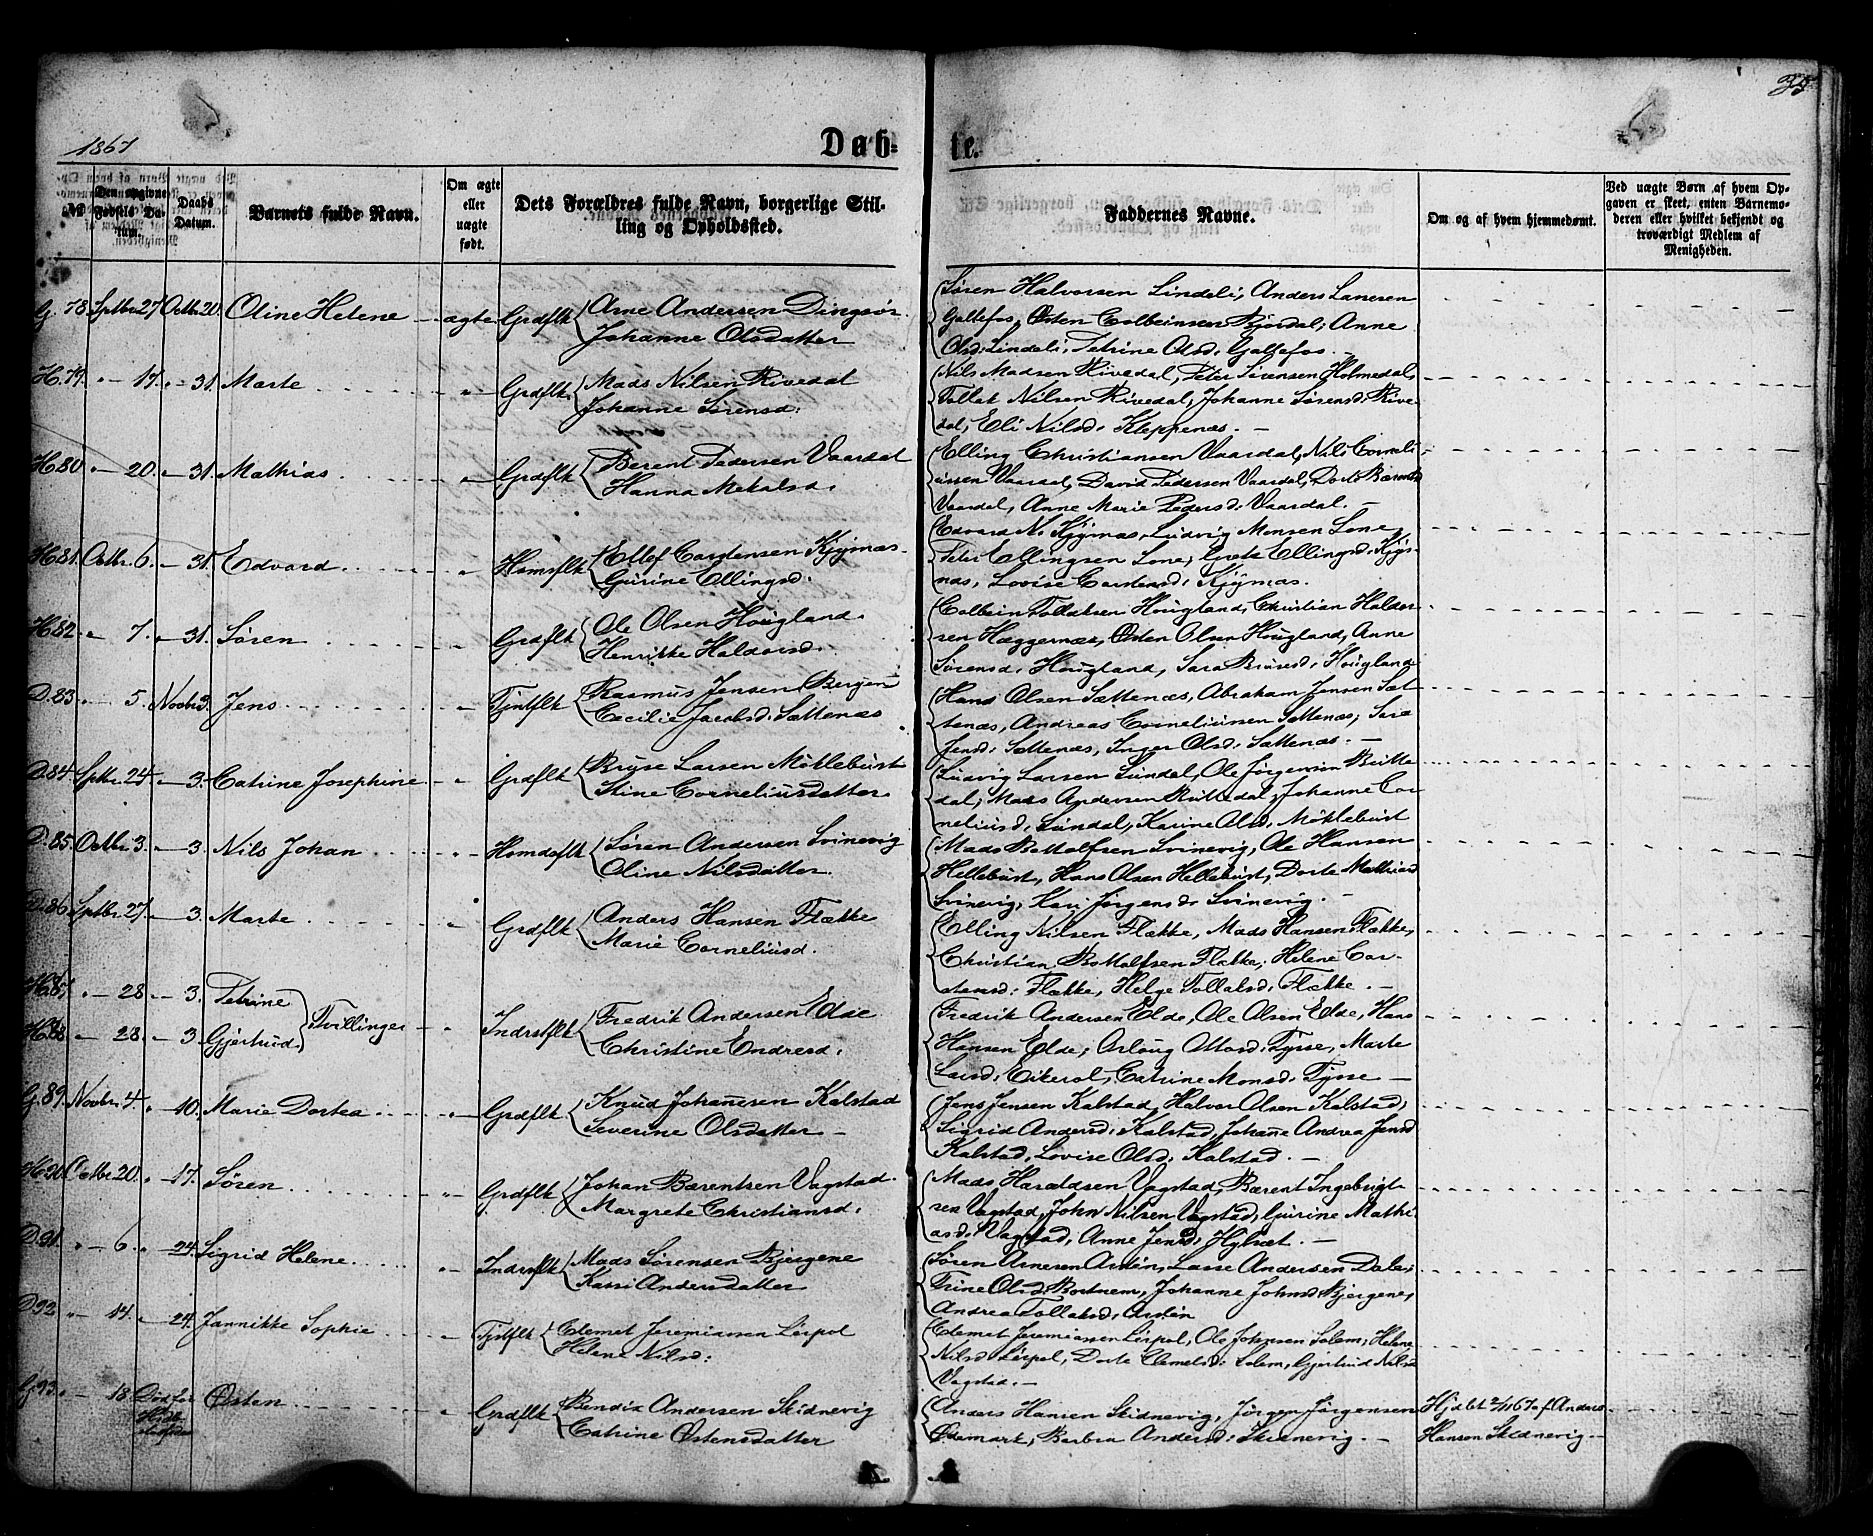 1867
Døb=
te.
35
No
Den opgivne Fødsels Datum.
Daabs Datum.
Barnets fulde Navn.
Om ægte eller uægte født.
Dets Forældres fulde Navn, borgerlige Stilling og Opholdssted.
Faddernes Navne.
Om og af hvem hjemmedømt.
Ved uægte Børn af hvem Opgaven er skeet, enten Barnemoderen eller hvilket bekjendt og troværdigt Medlem af Menigheden.
G. 78. Sptbr 27 Octbr 20. Oline Helene ægte Grdflk Arne Andersen Dingsør.
Johanne Olsdatter
Søren Halvorsen Lindeli, Anders Lanesen
Galtefos, Østen Colbeinsen Bjordal, Anne
Olsd: Lindeli, Petrine Olsd: Galtefos. —
H. 79. " — 17. " — 31. Marte " Grdflk Mads Nilsen Rivedal
Johanne Sørensd:
Nils Madsen Rivedal, Peter Sivensen Holmedal,
Tollak Nilsen Rivedal, Johanne Sørensd: Rive-
dal, Eli Nilsd: Kleppenæs. —
H. 80 " — 20. " — 31. Mathias " Grdflk Berent Pedersen Vaardal
Hanna Mekalsd:
Elling Christiansen Vaardal, Nils Corneli-
ussen Vaardal, David Pedersen Vaardal, Dorte Bærentsd
Vaardal, Anne Marie Pedersd: Vaardal. —
H. 81. Octbr. 6. — 31. Edvard " Hsmdflk Ellef Carstensen Kjyrnæs.
Gurine Ellingsd:
Edvard N. Kjyrnæs, Ludvig Monsen Lone,
Peter Ellingsen Lone, Grete Ellingsd: Kjyr-
næs, Lovise Carstensd: Kjyrnæs.
H. 82 " 7. " — 31. Søren " Grdflk Ole Olsen Hougland.
Henrikke Haldorsd:
Colbein Tollaksen Hougland, Christian Haldor-
sen Hæggernæs, Østen Olsen Hougland, Anne
Sørensd: Hougland, Sara Brusesd: Hougland
D. 83 " — 5. Novbr 3. Jens " Tjntflk Rasmus Jensen Bergen
Cecilie Jacobsd: Sættenæs
Hans Olsen Sættenæs, Abraham Jensen Sæt-
tenæs, Andreas Corneliussen Sættenæs, Sara
Jensd: Sættenæs, Inger Olsd: Sættenæs. —
D. 84. Sptbr. 24 — 3. Catrine Josephine " Grdflk Bruse Larsen Møklebust
Stine Corneliusdatter.
Ludvig Larsen Sundal, Ole Jørgensen Britte-
dal, Mads Andersen Rutledal, Johanne Cor-
neliusd: Sundal, Karine Olsd: Møklebust
D. 85. Octbr. 3. — 3. Nils Johan " Hsmdsflk Søren Andersen Svinevig
Oline Nilsdatter.
Mads Bottolfsen Svinevig, Ole Hansen
Hellebust, Hans Olsen Hellebust, Dorte Mathiasd
Svinevig, Kari Jørgensd: Svinevig. —
D. 86. Sptbr. 27. — 3. Marte " Grdflk Anders Hansen Flække
Marie Corneliusd.
Elling Nilsen Flække, Mads Hansen Flække,
Christian Bottolfsen Flække, Helene Car-
stensd: Flække, Helge Tollaksd: Flække. —
H. 87 " — 28. — 3. Petrine
H. 88 " — 28. — 3. Gjertrud Tvillinger " Indrstflk Fredrik Andersen Elde
Christine Endresd:
Fredrik Andersen Elde, Ole Olsen Elde, Hans
Hansen Elde, Arloug Ottosd: Tysse, Marte
Larsd: Eikerol, Catrine Monsd: Tysse —
G. 89. Novbr. 4. " 10. Marie Dortea " Grdflk Knud Johannesen Kalstad
Severine Olsdatter —
Jens Jensen Kalstad, Halvor Olsen Kalstad,
Sigrid Andersd: Kalstad, Johanne Andrea Jensd
Kalstad, Lovise Olsd: Kalstad. —
H. 90. Octbr 20. " 17. Søren " Grdflk Johan Bærentsen Vagstad.
Margrete Christiansd:
Mads Haraldsen Vagstad, Bærent Ingebrigt-
sen Vagstad, John Nilsen Vagstad, Gurine Mathi-
asd: Vagstad, Anne Jensd: Hylsæt. —
D. 91. " — 6. " 24. Sigrid Helene " Indrstflk Mads Sørensen Bjergene
Kari Andersdatter
Søren Arnesen Ardøn, Lasse Andersen Dale,
Trine Olsd: Bortnem, Johanne Johnsd: Bjergene,
Andrea Tollaksd: Ardøn
D. 92 " — 14. " 24. Jannikke Sophie " Tjstflk Clemet Jeremiassen Leirpol
Helene Nilsd:
Clemet Jeremiassen Leirpol, Ole Johnsen Solem, Helene
Nilsd: Leirpol, Dorte Clemetsd: Solem, Gjertrud Nilsd
Vagstad. —
G. 93. " — 18. Død før Østen " Grdflk Bendix Andersen Skidnevig
Catrine Østensdatter
Anders Hansen Skidnevig, Jørgen Jørgensen
Ødemark, Barbra Andersd: Skidnevig. —
Hjdbt 2/11 67 af Anders
Hanson Skidnevig —